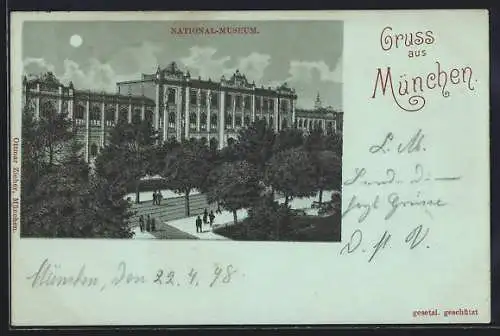 NATIONAL-MUSEUM.
Gruss
aus
München.
L. M.
Grüsse
D. V.
München, den 22. 4. 98.
Ottmar Zieher, München.
gesetzl. geschützt